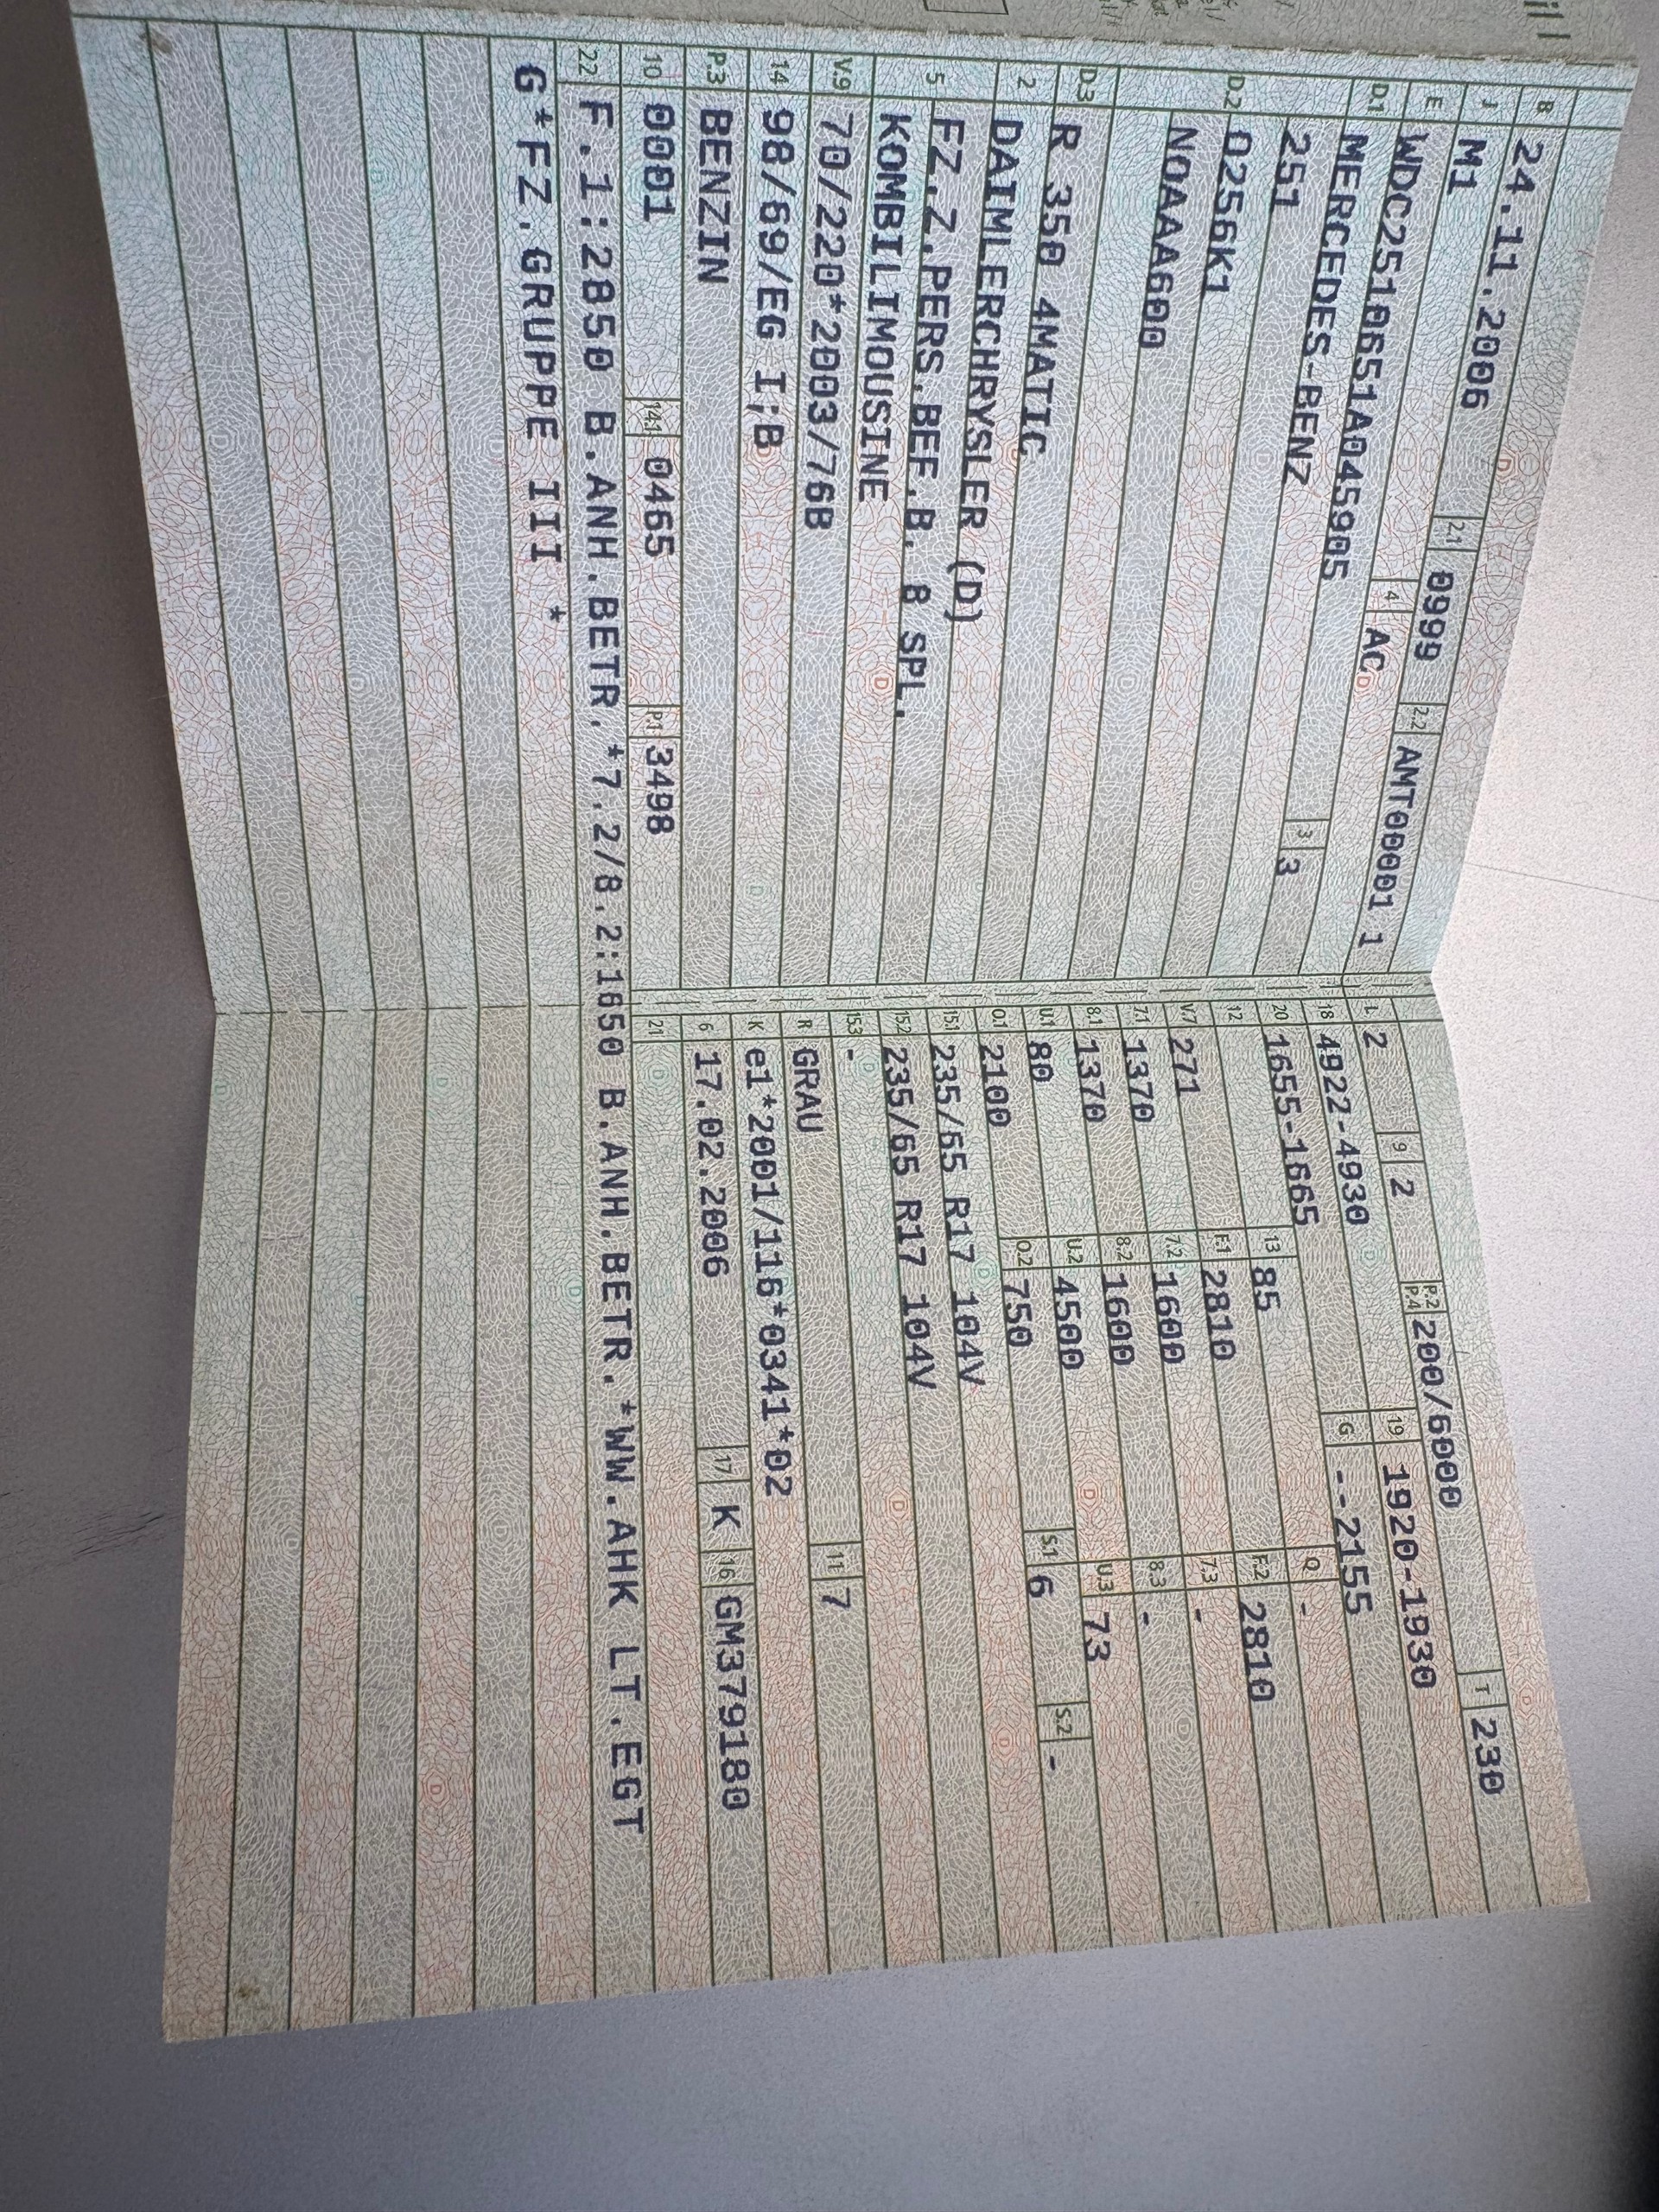 B 24.11.2006 2.1 0999 2.2 AMT00001 1
J M1 4 AC
E WDC2510651A045905 3 3
D.1 MERCEDES-BENZ
D.2 251
0256K1
N0AAA600
D.3 R 350 4MATIC
2 DAIMLERCHRYSLER (D)
5 FZ.Z.PERS.BEF.B. 8 SPL.
KOMBILIMOUSINE
V.9 70/220*2003/76B
14 98/69/EG I;B
P.3 BENZIN
10 0001 14.1 0465 P.1 3498
L 2 9 2 P.2 P.4 200/6000 T 230
18 4922-4930 19 1920-1930
20 1655-1665 G --2155
12 13 85 Q -
V.7 271 F.1 2810 F.2 2810
7.1 1370 7.2 1600 7.3 -
8.1 1370 8.2 1600 8.3 -
U.1 80 U.2 4500 U.3 73
O.1 2100 O.2 750 S.1 6 S.2 -
15.1 235/65 R17 104V
15.2 235/65 R17 104V
15.3 -
R GRAU 11 7
K e1*2001/116*0341*02
6 17.02.2006 17 K 16 GM379180
21
22 F.1:2850 B.ANH.BETR.*7.2/8.2:1650 B.ANH.BETR.*WW.AHK LT.EGT
G*FZ.GRUPPE III *